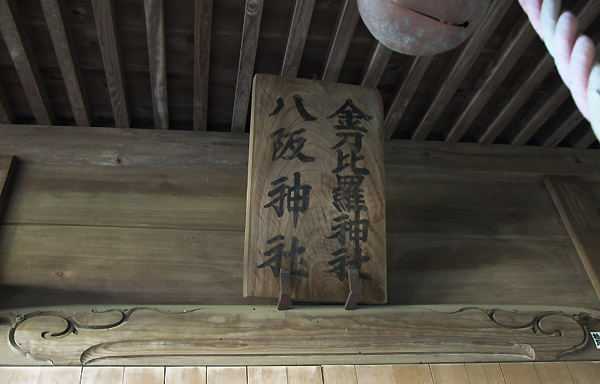 金刀比羅神社
八阪神社